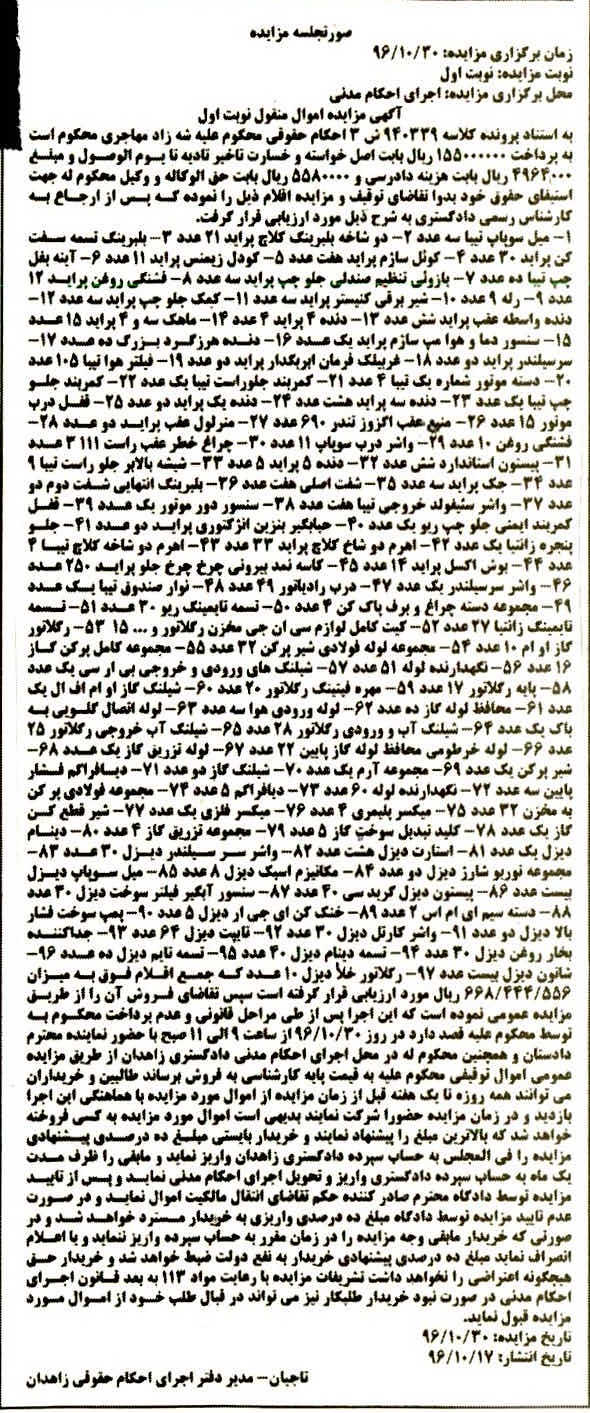 صورتجلسه مزایده
زمان برگزاری مزایده: ۹۶/۱۰/۳۰
نوبت مزایده: نوبت اول
محل برگزاری مزایده: اجرای احکام مدنی
آگهی مزایده اموال منقول نوبت اول
به استناد پرونده کلاسه ۹۴۰۳۳۹ ش ۳ احکام حقوقی محکوم علیه شه زاد مهاجری محکوم است
به پرداخت ۱۵۵۰۰۰۰۰۰ ریال بابت اصل خواسته و خسارت تاخیر تادیه تا یوم الوصول و مبلغ
۴۹۶۴۰۰۰ ریال بابت هزینه دادرسی و ۵۵۸۰۰۰۰ ریال بابت حق الوکاله و وکیل محکوم له جهت
استیفای حقوق خود بدوا تقاضای توقیف و مزایده اقلام ذیل را نموده که پس از ارجاع به
کارشناس رسمی دادگستری به شرح ذیل مورد ارزیابی قرار گرفت.
۱- میل سوپاپ تیبا سه عدد ۲- دو شاخه بلبرینگ کلاچ پراید ۲۱ عدد ۳- بلبرینگ تسمه سفت
کن پراید ۳۰ عدد ۴- کوئل سازم پراید هفت عدد ۵- کودل زیمنس پراید ۱۱ عدد ۶- آینه بغل
چپ تیبا ده عدد ۷- بازوئی تنظیم صندلی جلو چپ پراید سه عدد ۸- فشنگی روغن پراید ۱۲
عدد ۹- رله ۹ عدد ۱۰- شیر برقی کنیستر پراید سه عدد ۱۱- کمک جلو چپ پراید سه عدد ۱۲-
دنده واسطه عقب پراید شش عدد ۱۳- دنده ۴ پراید ۴ عدد ۱۴- ماهک سه و ۴ پراید ۱۵ عدد
۱۵- سنسور دما و هوا مپ سازم پراید یک عدد ۱۶- دنده هرزگرد بزرگ ده عدد ۱۷-
سرسیلندر پراید دو عدد ۱۸- غربیلک فرمان ایربگدار پراید دو عدد ۱۹- فیلتر هوا تیبا ۱۰۵ عدد
۲۰- دسته موتور شماره یک تیبا ۴ عدد ۲۱- کمربند جلوراست تیبا یک عدد ۲۲- کمربند جلو
چپ تیبا یک عدد ۲۳- دنده سه پراید هشت عدد ۲۴- دنده یک پراید دو عدد ۲۵- قفل درب
موتور ۱۵ عدد ۲۶- منبع عقب اگزوز تندر ۶۹۰ عدد ۲۷- منرلول عقب پراید دو عدد ۲۸-
فشنگی روغن ۱۰ عدد ۲۹- واشر درب سوپاپ ۱۱ عدد ۳۰- چراغ خطر عقب راست ۱۱۱ ۳ عدد
۳۱- پیستون استاندارد شش عدد ۳۲- دنده ۵ پراید ۵ عدد ۳۳- شیشه بالابر جلو راست تیبا ۹
عدد ۳۴- جک پراید سه عدد ۳۵- شفت اصلی هفت عدد ۳۶- بلبرینگ انتهایی شفت دوم دو
عدد ۳۷- واشر منیفولد خروجی تیبا هفت عدد ۳۸- سنسور دور موتور یک عدد ۳۹- قفل
کمربند ایمنی جلو چپ ریو یک عدد ۴۰- حبابگیر بنزین انژکتوری پراید دو عدد ۴۱- جلو
پنجره زانتیا یک عدد ۴۲- اهرم دو شاخ کلاچ پراید ۳۳ عدد ۴۳- اهرم دو شاخه کلاچ تیبا ۴
عدد ۴۴- بوش اکسل پراید ۱۴ عدد ۴۵- کاسه نمد بیرونی چرخ چرخ جلو پراید ۲۵۰ عدد
۴۶- واشر سرسیلندر یک عدد ۴۷- درب رادیاتور ۴۹ عدد ۴۸- نوار صندوق تیبا یک عدد
۴۹- مجموعه دسته چراغ و برف پاک کن ۴ عدد ۵۰- تسمه تایمینگ ریو ۳۰ عدد ۵۱- تسمه
تایمینگ زانتیا ۲۷ عدد ۵۲- کیت کامل لوازم سی ان جی مخزن رگلاتور و ... ۱۵ ۵۳- رگلاتور
گاز او ام ۱۰ عدد ۵۴- مجموعه لوله فولادی شیر پرکن ۳۲ عدد ۵۵- مجموعه کامل پرکن گاز
۱۶ عدد ۵۶- نگهدارنده لوله ۵۱ عدد ۵۷- شیلنگ های ورودی و خروجی بی ار سی یک عدد
۵۸- پایه رگلاتور ۱۷ عدد ۵۹- مهره فیتینگ رگلاتور ۲۰ عدد ۶۰- شیلنگ گاز او ام اف ال یک
عدد ۶۱- محافظ لوله گاز ده عدد ۶۲- لوله ورودی هوا سه عدد ۶۳- لوله اتصال گلویی به
باک یک عدد ۶۴- شیلنگ آب و ورودی رگلاتور ۲۸ عدد ۶۵- شیلنگ آب خروجی رگلاتور ۲۵
عدد ۶۶- لوله خرطومی محافظ لوله گاز پایین ۲۲ عدد ۶۷- لوله تزریق گاز یک عدد ۶۸-
شیر پرکن یک عدد ۶۹- مجموعه آرم یک عدد ۷۰- شیلنگ گاز دو عدد ۷۱- دیسافراگم فشار
پایین سه عدد ۷۲- نگهدارنده لوله ۶۰ عدد ۷۳- دیافراگم ۵ عدد ۷۴- مجموعه فولادی پر کن
به مخزن ۳۲ عدد ۷۵- میکسر پلیمری ۴ عدد ۷۶- میکسر فلزی یک عدد ۷۷- شیر قطع کن
گاز یک عدد ۷۸- کلید تبدیل سوخت گاز ۵ عدد ۷۹- مجموعه تزریق گاز ۴ عدد ۸۰- دینام
دیزل یک عدد ۸۱- استارت دیزل هشت عدد ۸۲- واشر سر سیلندر دیزل ۳۰ عدد ۸۳-
مجموعه توربو شارژ دیزل دو عدد ۸۴- مکانیزم اسبک دیزل ۸ عدد ۸۵- میل سوپاپ دیزل
بیست عدد ۸۶- پیستون دیزل گرید سی ۴۰ عدد ۸۷- سنسور آبگیر فیلتر سوخت دیزل ۳۰ عدد
۸۸- دسته سیم ای ام اس ۲ عدد ۸۹- خنک کن ای جی ار دیزل ۵ عدد ۹۰- پمپ سوخت فشار
بالا دیزل دو عدد ۹۱- واشر کارتل دیزل ۳۰ عدد ۹۲- تایپت دیزل ۶۴ عدد ۹۳- جداکننده
بخار روغن دیزل ۳۰ عدد ۹۴- تسمه دینام دیزل ۴۰ عدد ۹۵- تسمه تایم دیزل ده عدد ۹۶-
شاتون دیزل بیست عدد ۹۷- رگلاتور خلأ دیزل ۱۰ عدد که جمع اقلام فوق به میزان
۶۶۸/۴۴۴/۵۵۶ ریال مورد ارزیابی قرار گرفته است سپس تقاضای فروش آن را از طریق
مزایده عمومی نموده است که این اجرا پس از طی مراحل قانونی و عدم پرداخت محکوم به
توسط محکوم علیه قصد دارد در روز ۹۶/۱۰/۳۰ از ساعت ۹ الی ۱۱ صبح با حضور نماینده محترم
دادستان و همچنین محکوم له در محل اجرای احکام مدنی دادگستری زاهدان از طریق مزایده
عمومی اموال توقیفی محکوم علیه به قیمت پایه کارشناسی به فروش برساند طالبین و خریداران
می توانند همه روزه تا یک هفته قبل از زمان مزایده از اموال مورد مزایده با هماهنگی این اجرا
بازدید و در زمان مزایده حضورا شرکت نمایند بدیهی است اموال مورد مزایده به کسی فروخته
خواهد شد که بالاترین مبلغ را پیشنهاد نمایند و خریدار بایستی مبلغ ده درصدی پیشنهادی
مزایده را فی المجلس به حساب سپرده دادگستری زاهدان واریز نماید و مابقی را ظرف مدت
یک ماه به حساب سپرده دادگستری واریز و تحویل اجرای احکام مدنی نماید و پس از تایید
مزایده توسط دادگاه محترم صادر کننده حکم تقاضای انتقال مالکیت اموال نماید و در صورت
عدم تایید مزایده توسط دادگاه مبلغ ده درصدی واریزی به خریدار مسترد خواهد شد و در
صورتی که خریدار مابقی وجه مزایده را در زمان مقرر به حساب سپرده واریز ننماید و یا اعلام
انصراف نماید مبلغ ده درصدی پیشنهادی خریدار به نفع دولت ضبط خواهد شد و خریدار حق
هیچگونه اعتراضی را نخواهد داشت تشریفات مزایده با رعایت مواد ۱۱۳ به بعد قانون اجرای
احکام مدنی در صورت نبود خریدار طلبکار نیز می تواند در قبال طلب خود از اموال مورد
مزایده قبول نماید.
تاریخ مزایده: ۹۶/۱۰/۳۰
تاریخ انتشار: ۹۶/۱۰/۱۷
تاجیان- مدیر دفتر اجرای احکام حقوقی زاهدان